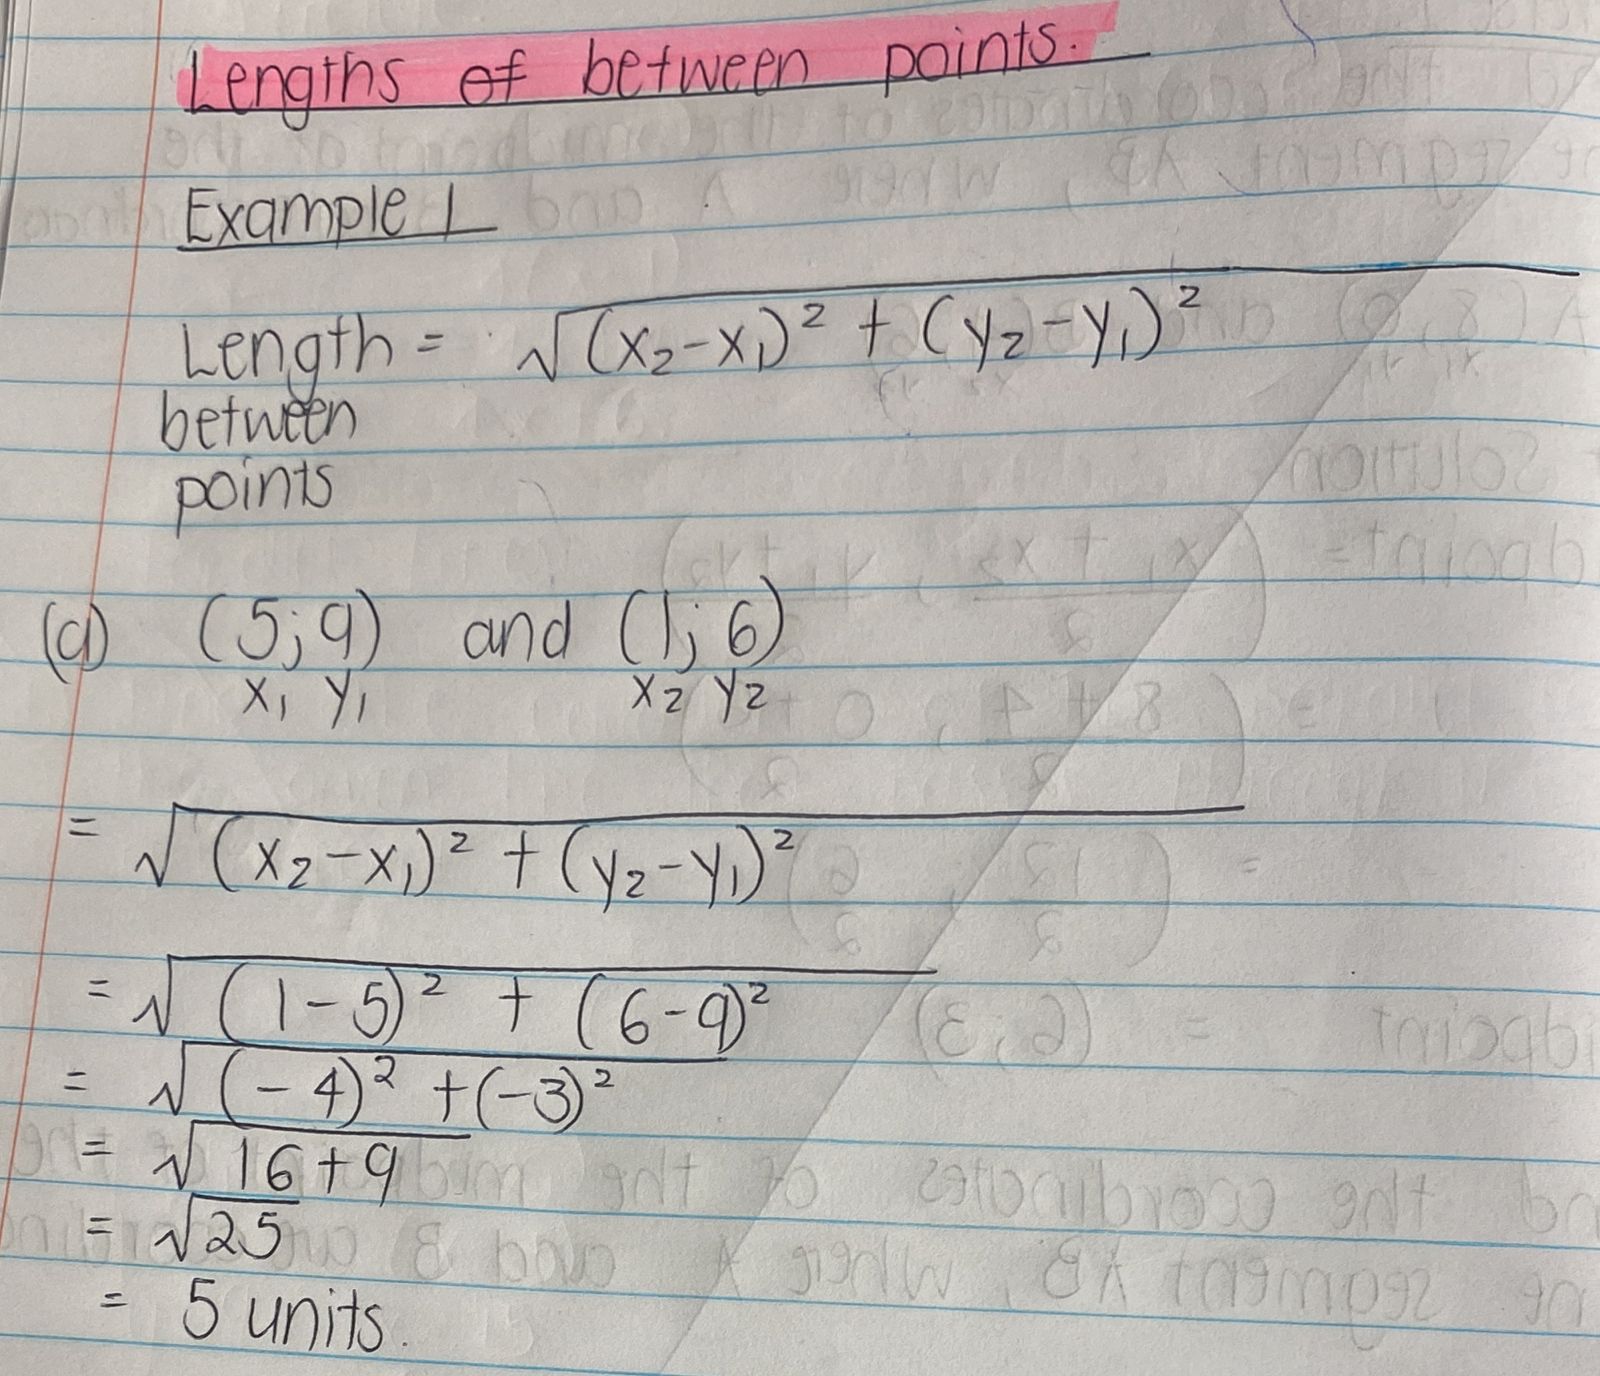 Lengths of between points.
Example 1
Length = √(x₂-x₁)² + (y₂-y₁)²
between
points
(a) (5;9) and (1;6)
x₁ y₁ x₂ y₂
= √(x₂-x₁)² + (y₂-y₁)²
= √(1-5)² + (6-9)²
= √(-4)² +(-3)²
= √16+9
= √25
= 5 units.